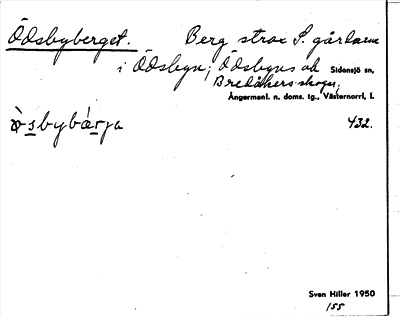 Ödsbyberget. Berg strax S. gårdarna
i Ödsbyn; Ödsbyns och Sidensjö sn,
Bredåkers skogar;
Ångermanl. n. doms. tg., Västernorrl. l.
432.
Sven Hiller 1950
155